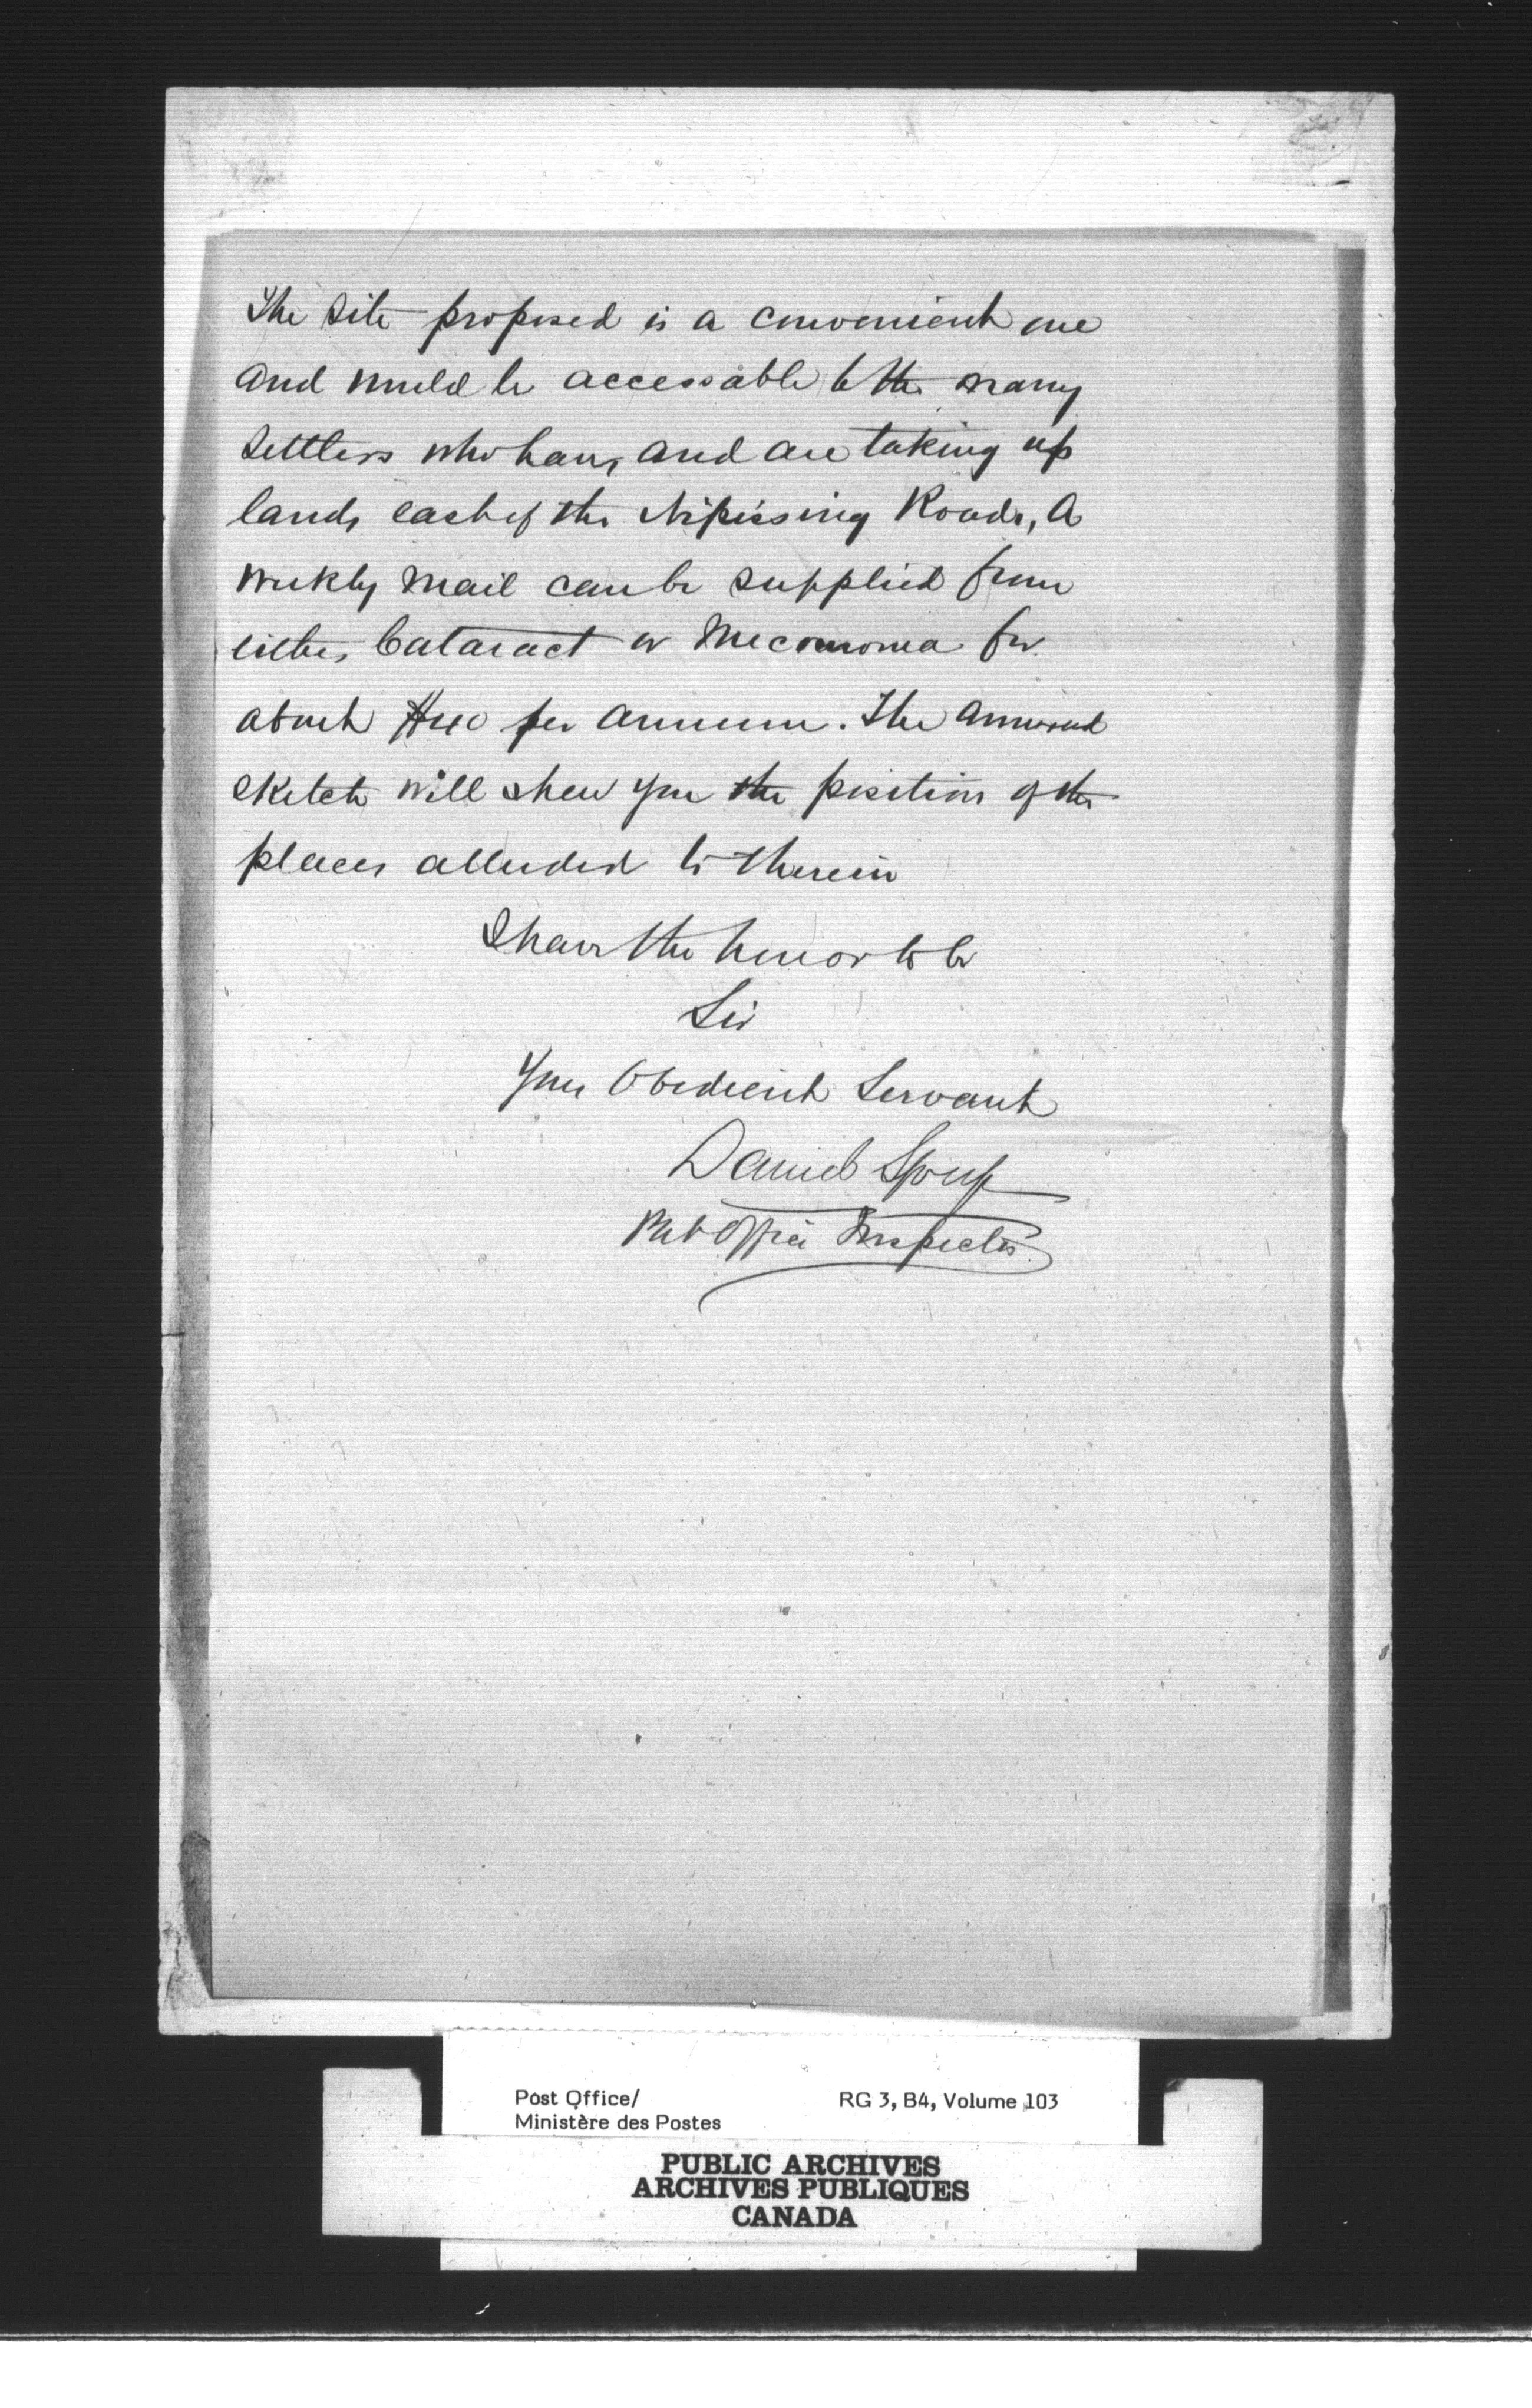 The Site proposed is a convenient one
and would be accessable to the many
Settlers who have, and are taking up
lands east of the Nipissing Roads, A
weekly Mail can be supplied from
either Cataract or Mecounoma for
about $40 per annum. The annexed
Sketch will shew you the position of the
places alluded to therein
I have the honor to be
Sir
Your Obedient Servant
Daniel Spry
Post Office Inspector
Post Office/ RG 3, B4, Volume 103
Ministère des Postes
PUBLIC ARCHIVES
ARCHIVES PUBLIQUES
CANADA